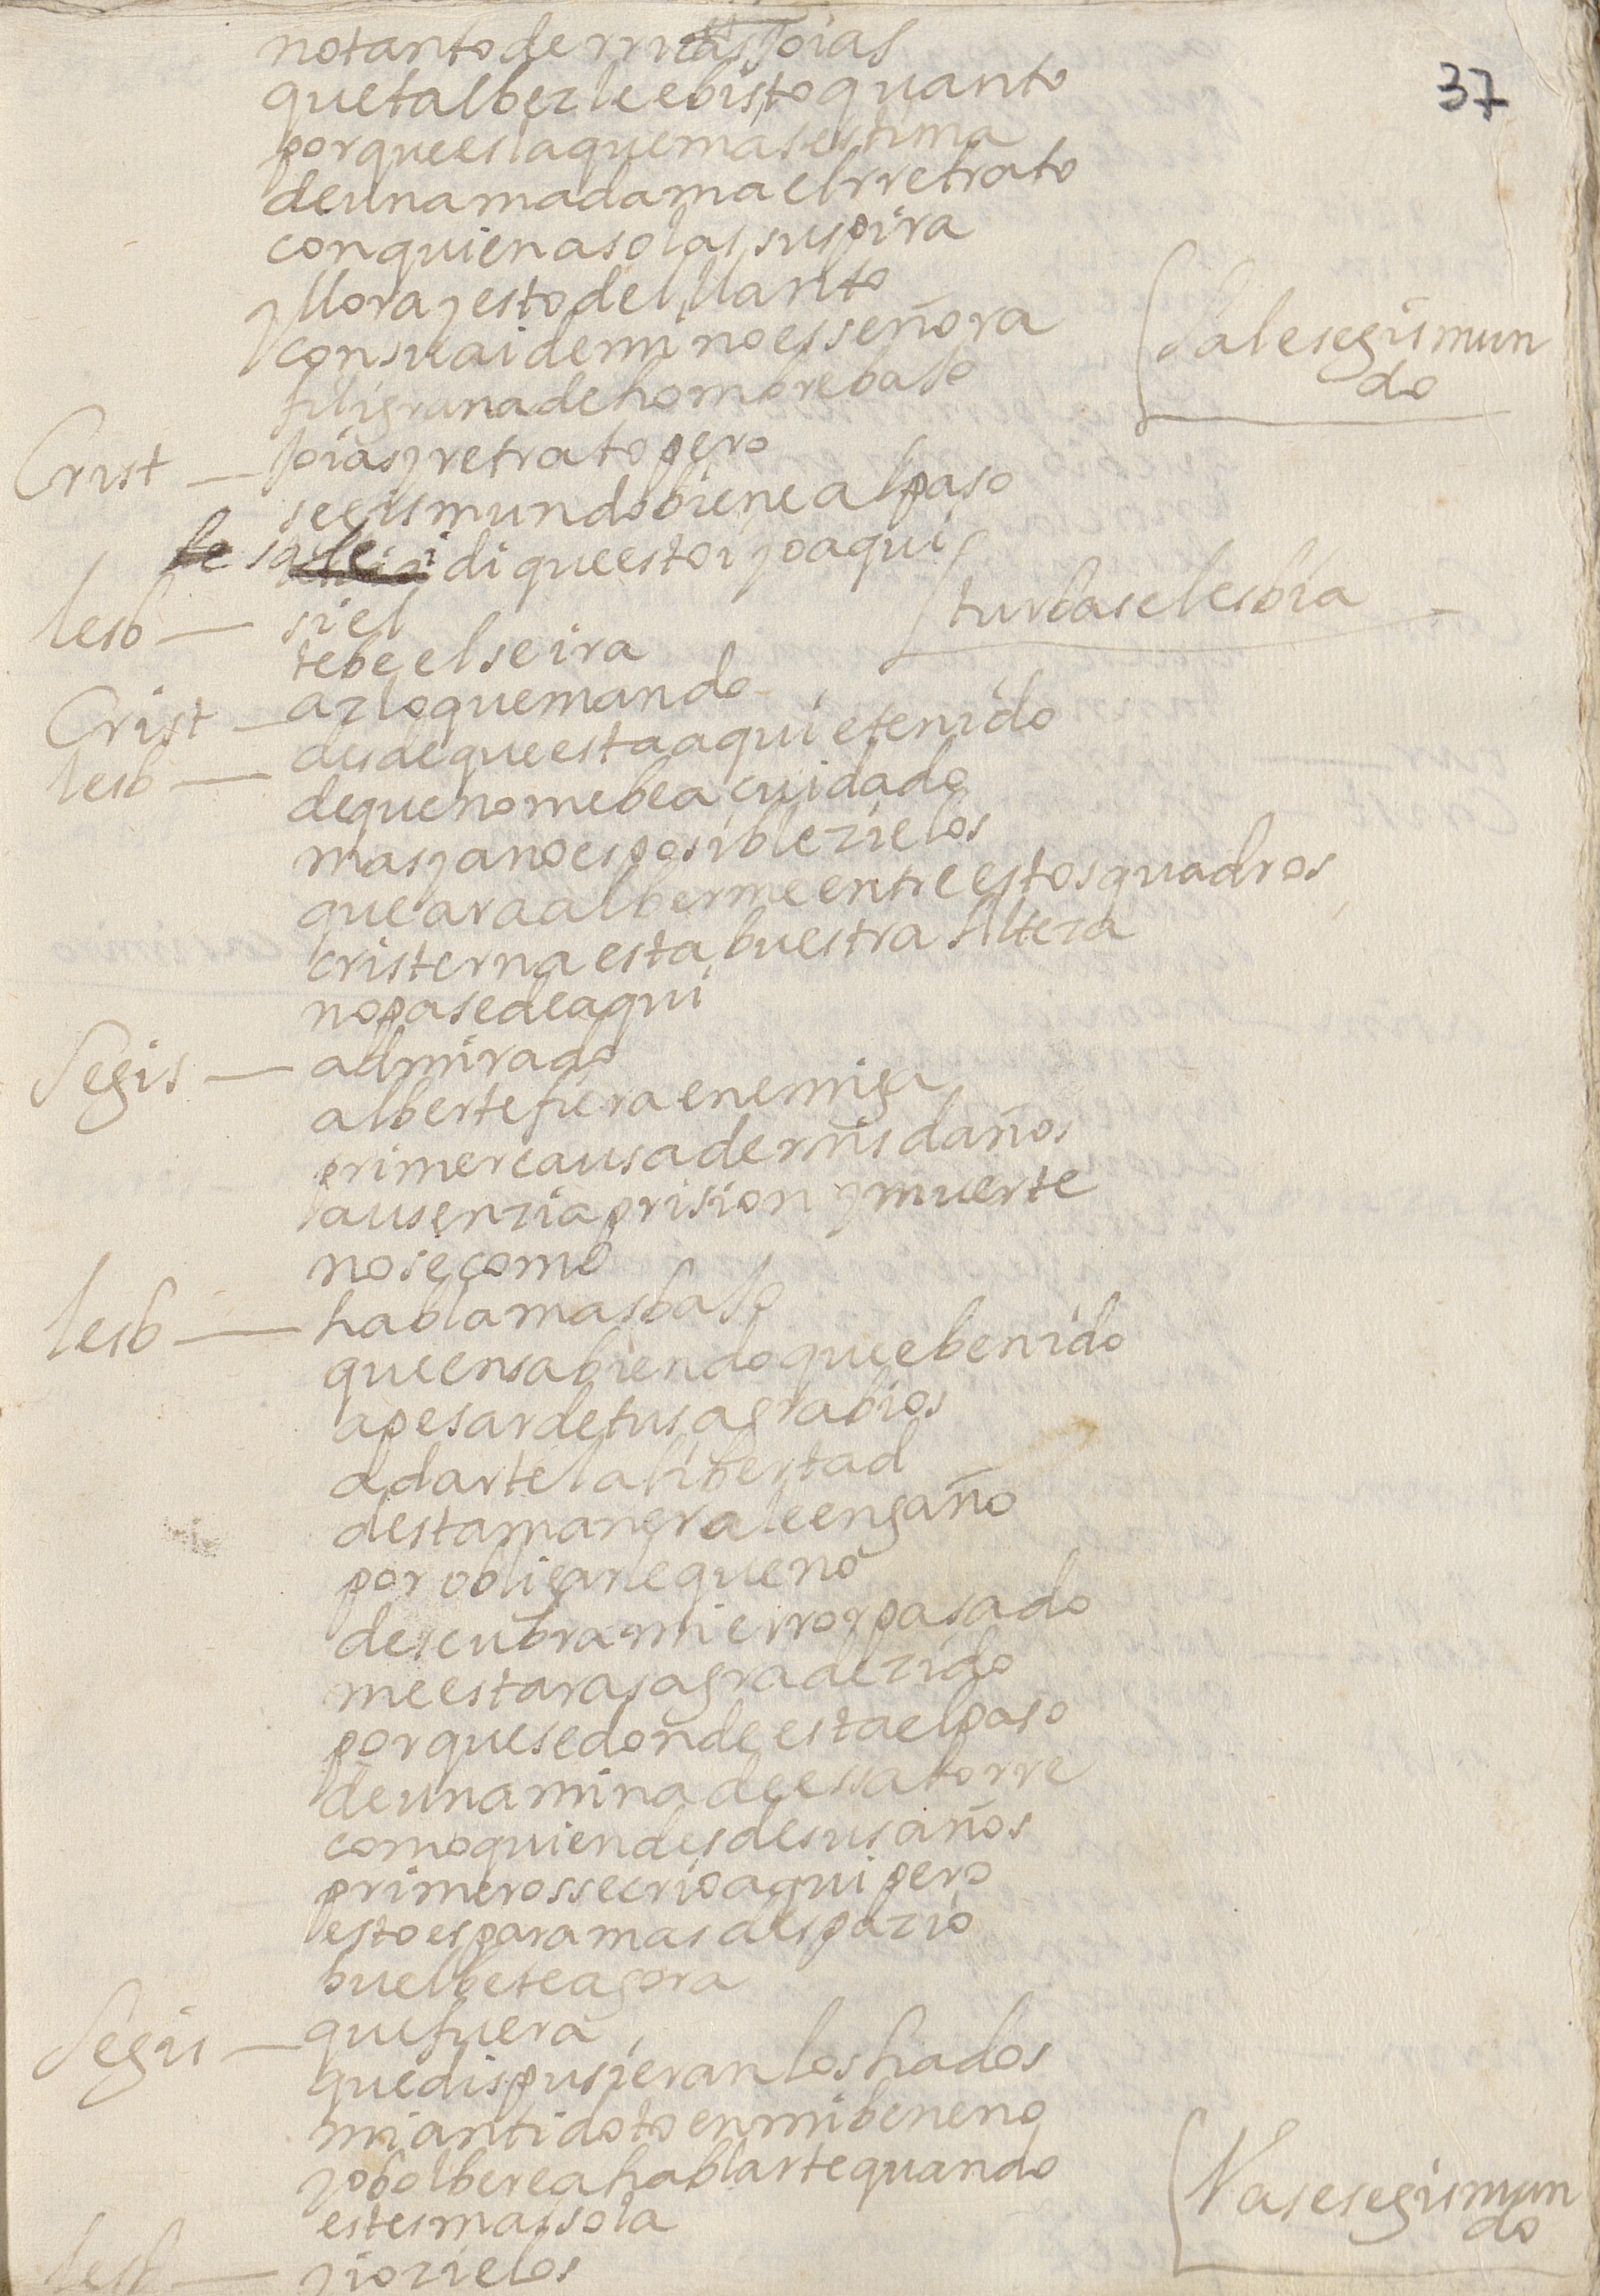 37
no tanto de rricas joias
que tal bez le e bisto quanto
porque es la que mas estima
de una madama el rretrato
con quien a solas suspira
y llora y esto del llanto
con su ai de mi no es señora
filigrana de hombre bajo
Sale segismun
do
Crist — joias y retrato pero
segismundo biene al paso
sale i di que estoi yo aqui
turbase lesbia
lesb — si el
te be el se ira
Crist — az lo que mando
lesb — desde que esta aqui e tenido
de que no me bea cuidado
mas ya no es posible zielos
que ara al berme entre estos quadros
cristerna esta buestra Alteza
no pase de aqui
Segis — admirado
al berte fiera enemiga
primer causa de mis daños
ausenzia prision y muerte
no se como
lesb — habla mas bajo
que en sabiendo que e benido
a pesar de tus agrabios
a darte la libertad
desta manera le engaño
por obligarle que no
descubra mi error pasado
me estaras agradezido
porque se donde esta el paso
de una mina de essa torre
como quien desde sus años
primeros se crio aqui pero
esto es para mas despazio
buelbete agora
Segis — que fuera
que dispusieran los hados
mi antidoto en mi beneno
yo bolbere a hablarte quando
estes mas sola
Vase segismun
do
lesb — y io zielos